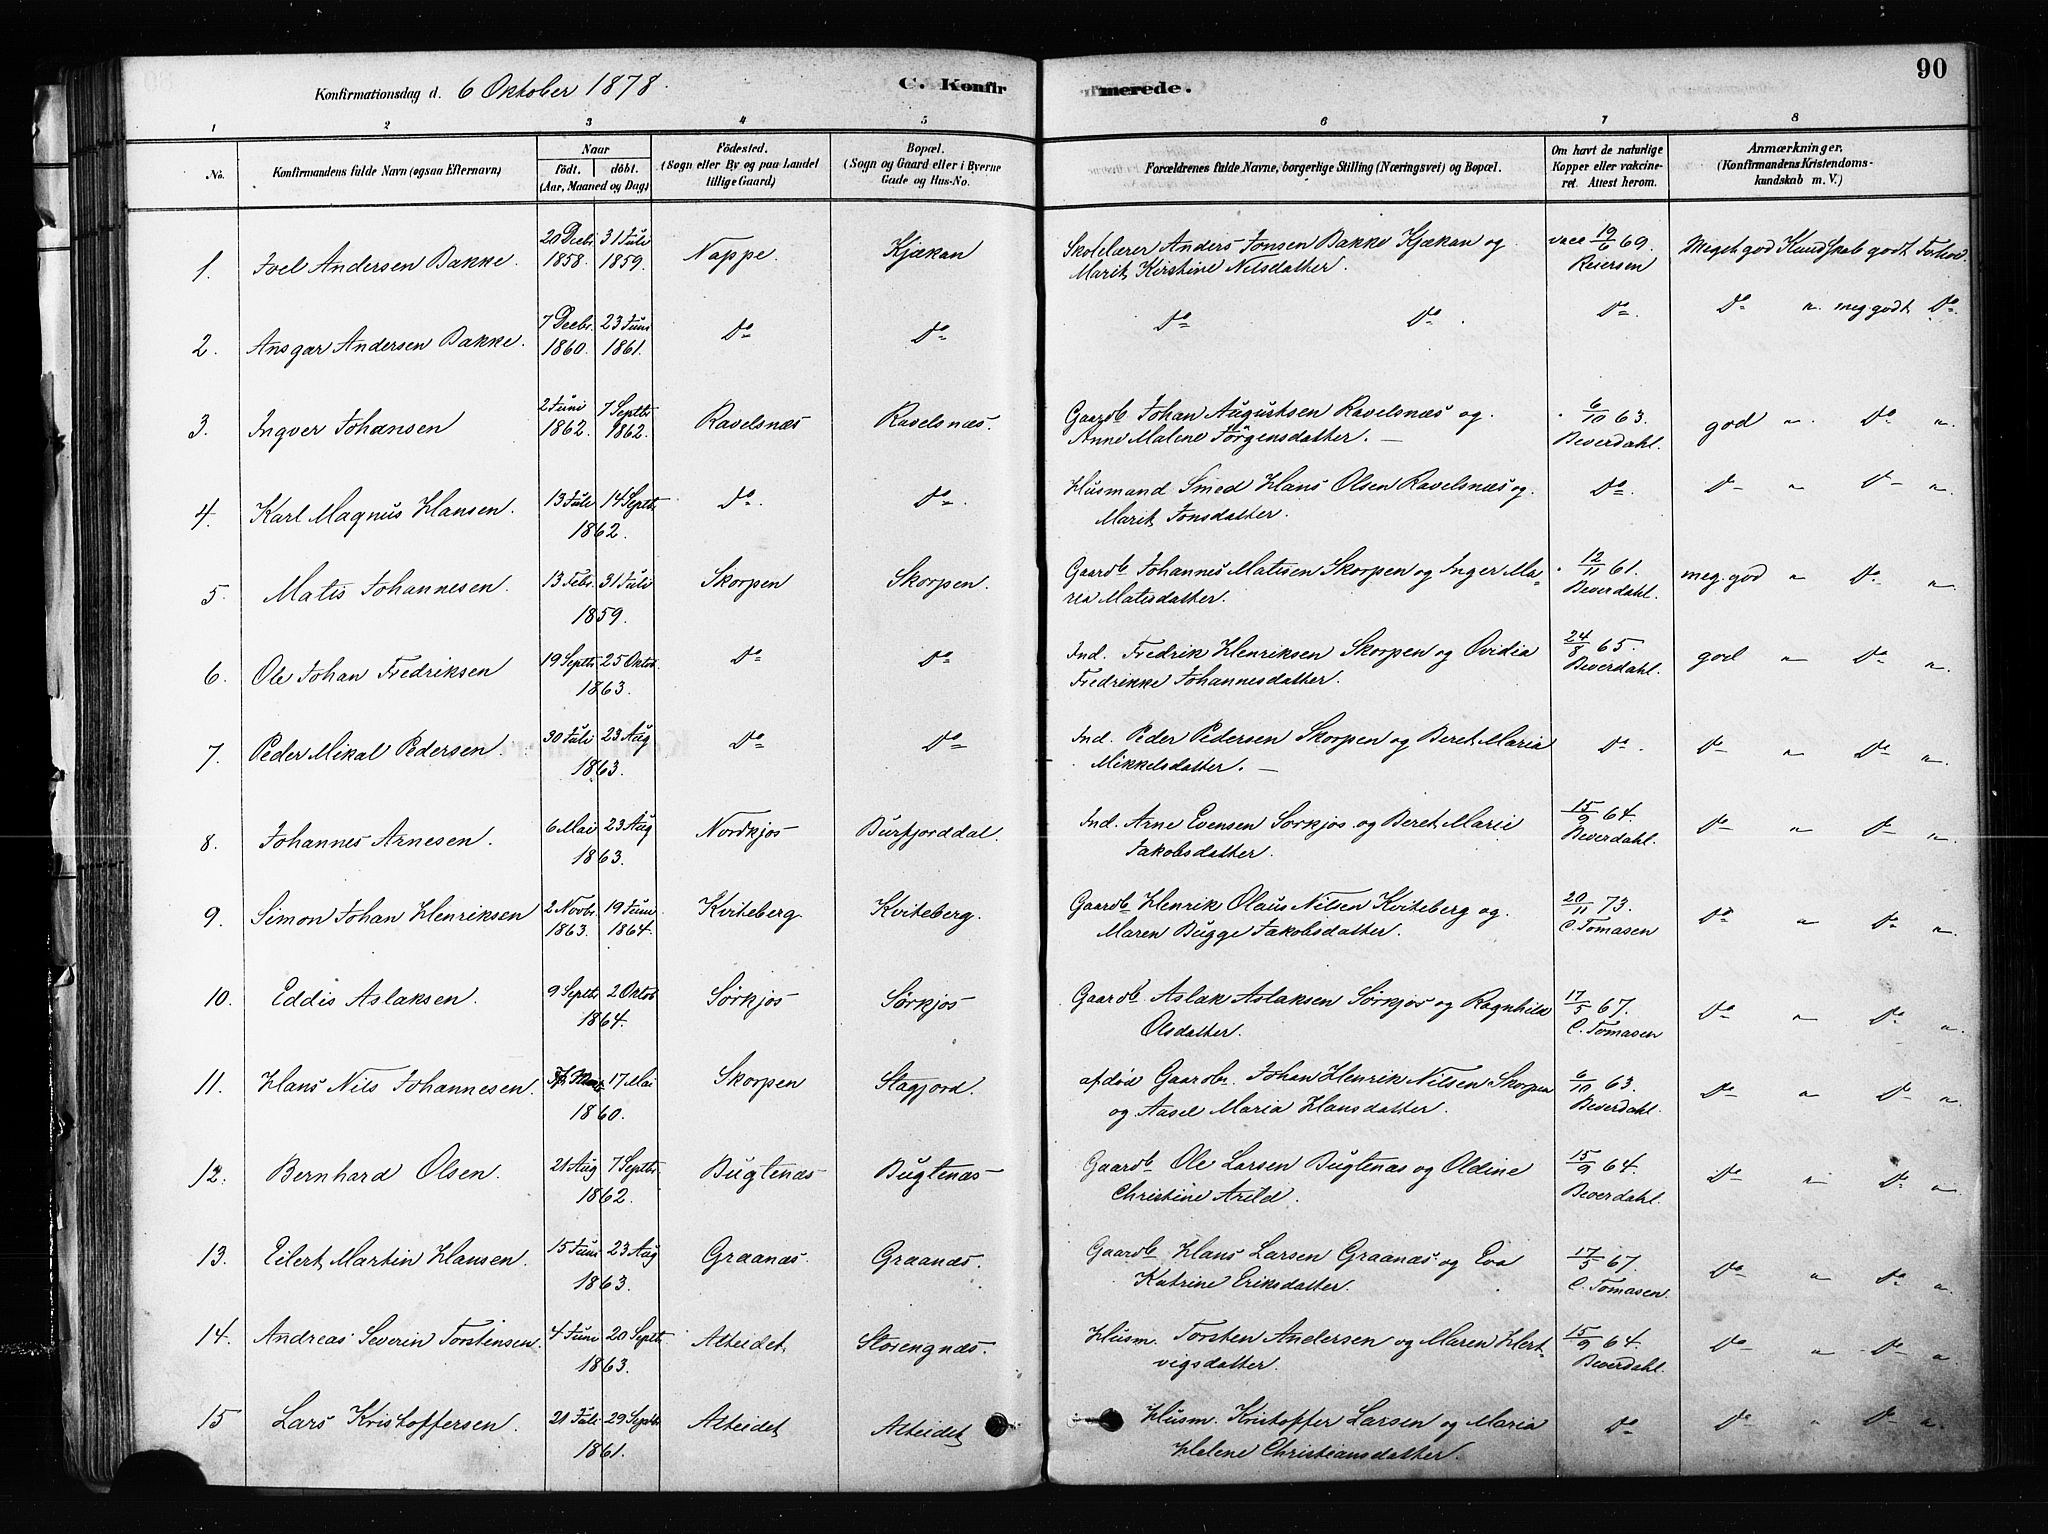 90
Konfirmationsdag d. 6 Oktober 1878. C. Konfir merede.
1 2 3 4 5 6 7 8
No. Konfirmandens fulde Navn (ogsaa Efternavn) Naar født. døbt. (Aar, Maaned og Dag) Fødested. (Sogn eller By og paa Landet tillige Gaard) Bopæl. (Sogn og Gaard eller i Byerne Gade og Hus-No. Forældrenes fulde Navne, borgerlige Stilling (Næringsvei) og Bopæl. Om havt de naturlige Kopper eller vakcineret. Attest herom. Anmærkninger. (Konfirmandens Kristendomskundskab m. V.)
1. Joel Andersen Bakke. 20 Decbr. 1858. 31 Juli 1859. Nappe. Kjækan Skolelærer Anders Jonsen Bakke Kjækan og vacc 19/6 69. Meget god Kundskab godt Forhold.
Marit Kirstine Nilsdatter. Reiersen
2. Ansgar Andersen Bakke. 7 Decbr. 1860. 23 Juni 1861. Do Do Do Do Do Do " meg godt Do
3. Ingver Johansen 2 Juni 1862. 7 Septbr. 1862. Ravelsnæs Ravelsnæs. Gaardb. Johan Augustsen Ravelsnæs og " 6/10 63. god " Do "
Anne Malene Jørgensdatter. Beverdahl.
4. Karl Magnus Hansen. 13 Juli 14 Septbr. 1862. Do Do Husmand Smed Hans Olsen Ravelsnæs og Do Do " Do "
Marit Jonsdatter.
5. Matis Johannesen. 13 Febr. 31 Juli 1859. Skorpen Skorpen. Gaardb. Johannes Matisen Skorpen og Inger Ma- " 12/11 61. meg. god " Do "
ria Matisdatter. Beverdahl.
6. Ole Johan Fredriksen 19 Septbr. 25 Oktob. 1863. Do Do Ind. Fredrik Henriksen Skorpen og Ovidia 24/8 65. god " Do "
Fredrikke Johannesdatter. Beverdahl.
7. Peder Mikal Pedersen. 30 Juli 23 Aug 1863. Do Do Ind. Peder Pedersen Skorpen og Beret Maria Do Do " Do "
Mikkelsdatter.
8. Johannes Arnesen. 6 Mai 23 Aug 1863. Nordkjos Burfjorddal. Ind. Arne Evensen Sørkjos og Beret Marie 15/9 64. Do " Do "
Jakobsdatter. Beverdahl.
9. Simon Johan Henriksen 2 Novbr. 1863. 19 Juni 1864. Kviteberg Kviteberg. Gaardb. Henrik Olaus Nilsen Kviteberg og 20/11 73. Do " Do "
Maren Bugge Jakobsdatter. C. Tomasen
10. Eddis Aslaksen. 9 Septbr. 2 Oktob 1864. Sørkjos Sørkjos Gaardb. Aslak Aslaksen Sørkjos og Ragnhild 17/5 67. Do " Do "
Olsdatter. C. Tomasen
11. Hans Nils Johannesen. 17 Mai 1860. Skorpen Stagfjord. afdød Gaardbr. Johan Henrik Nilsen Skorpen 6/10 63. Do " Do "
og Aasel Maria Hansdatter. Beverdahl.
12. Bernhard Olsen. 21 Aug 7 Septbr. 1862. Bugtenæs Bugtenæs Gaardb. Ole Larsen Bugtenæs og Oldine 15/9 64. Do " Do "
Christine Arild. Beverdahl.
13. Eilert Martin Hansen. 15 Juni 23 Aug 1863. Graanæs. Graanæs. Gaardb. Hans Larsen Graanæs og Eva 17/5 67. Do " Do "
Katrine Eriksdatter. C. Tomasen.
14. Andreas Severin Torstensen. 4 Juni 20 Septbr. 1863. Alteidet. Storengnæs. Husm. Torsten Andersen og Maren Hert- 15/9 64. Do " Do "
vigsdatter. Beverdahl.
15 Lars Kristoffersen. 21 Juli 29 Septbr. 1861. Alteidet Alteidet Husm. Kristoffer Larsen og Maria Do Do " Do "
Helene Christiansdatter.